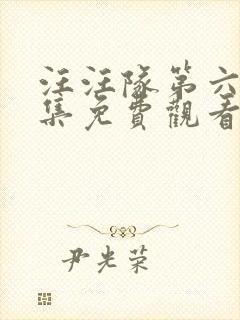 汪汪隊第六
集免費觀看
尹光荣